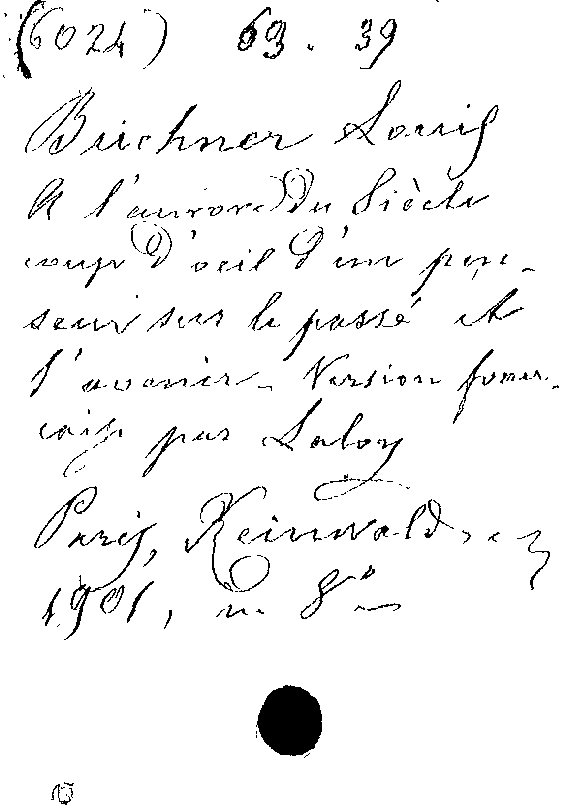 (6024) 63. 39
Büchner Louis
A l'aurore du Siècle
coup d'oeil d'un pen-
seur sur le passé et
l'avenir - Version fran-
çaise par Laloy
Paris, Reinwald,
1901, in 8º